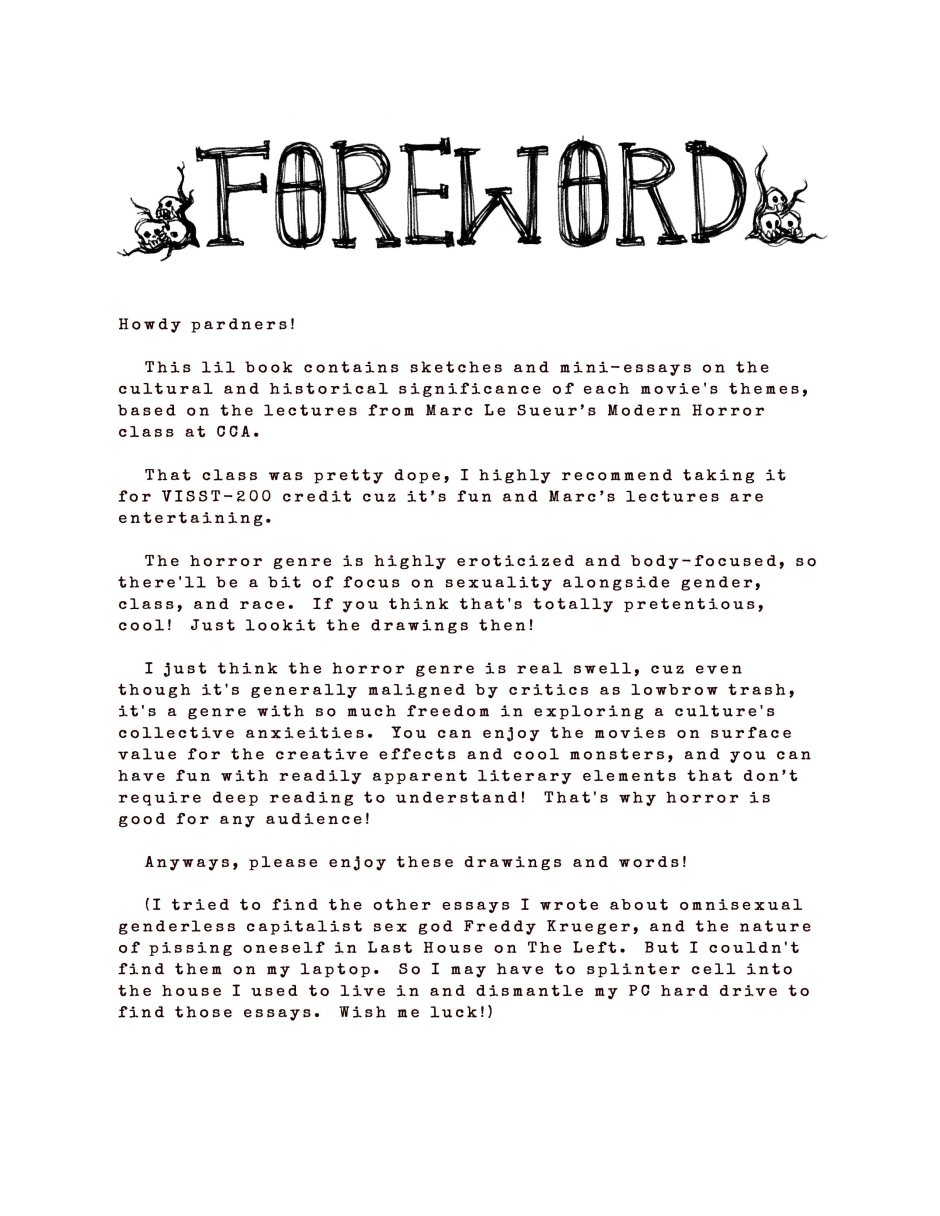 FOREWORD
Howdy pardners!
This lil book contains sketches and mini-essays on the
cultural and historical significance of each movie's themes,
based on the lectures from Marc Le Sueur’s Modern Horror
class at CCA.
That class was pretty dope, I highly recommend taking it
for VISST-200 credit cuz it’s fun and Marc’s lectures are
entertaining.
The horror genre is highly eroticized and body-focused, so
there'll be a bit of focus on sexuality alongside gender,
class, and race.  If you think that's totally pretentious,
cool!  Just lookit the drawings then!
I just think the horror genre is real swell, cuz even
though it's generally maligned by critics as lowbrow trash,
it's a genre with so much freedom in exploring a culture's
collective anxieities.  You can enjoy the movies on surface
value for the creative effects and cool monsters, and you can
have fun with readily apparent literary elements that don’t
require deep reading to understand!  That's why horror is
good for any audience!
Anyways, please enjoy these drawings and words!
(I tried to find the other essays I wrote about omnisexual
genderless capitalist sex god Freddy Krueger, and the nature
of pissing oneself in Last House on The Left.  But I couldn't
find them on my laptop.  So I may have to splinter cell into
the house I used to live in and dismantle my PC hard drive to
find those essays.  Wish me luck!)